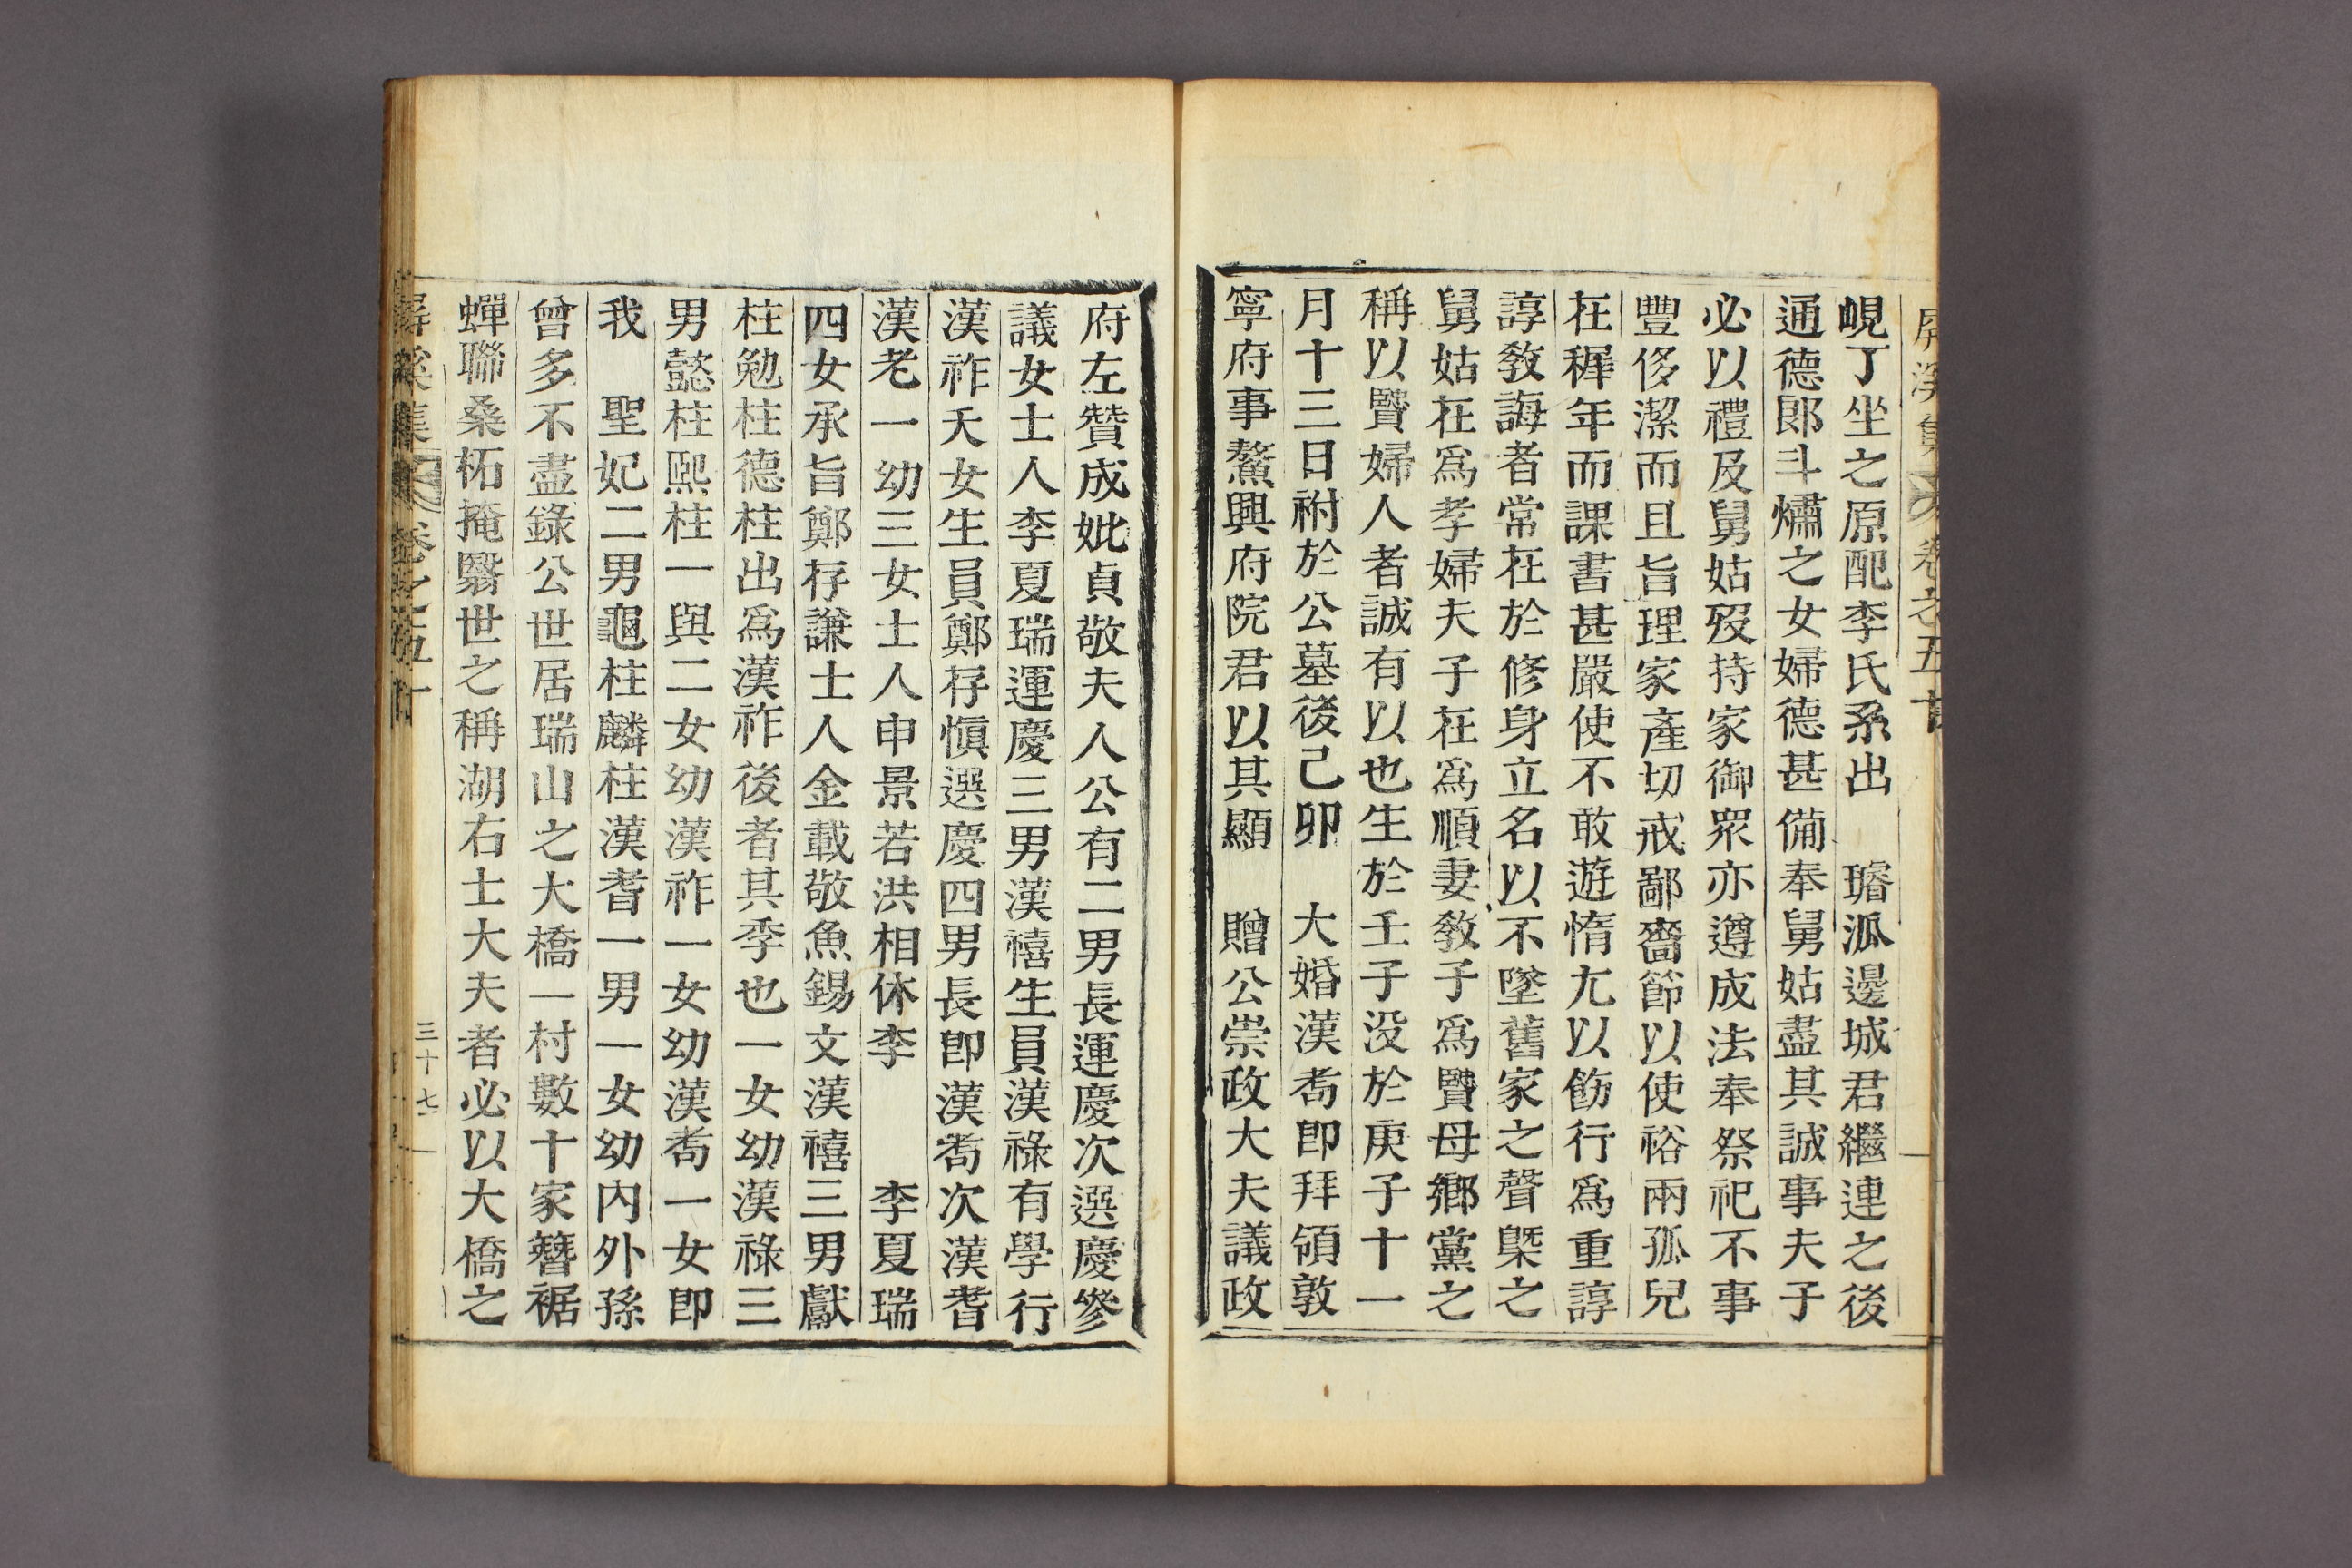 峴丁坐之原配李氏系出 璿派邊城君繼連之後
通德郎斗熽之女婦德甚備奉舅姑盡其誠事夫子
必以禮及舅姑歿持家御衆亦遵成法奉祭祀不事
豐侈潔而且旨理家產切戒鄙嗇節以使裕兩孤兒
在穉年而課書甚嚴使不敢遊惰尢以飭行爲重諄
諄敎誨者常在於修身立名以不墜舊家之聲槩之
舅姑在爲孝婦夫子在爲順妻敎子爲賢母鄕黨之
稱以賢婦人者誠有以也生於壬子没於庚子十一
月十三日祔於公墓後己卯 大婚漢耈卽拜領敦
寧府事鰲興府院君以其顯 贈公崇政大夫議政
府左贊成妣貞敬夫人公有二男長運慶次選慶參
議女士人李夏瑞運慶三男漢禧生員漢祿有學行
漢祚夭女生員鄭存愼選慶四男長卽漢耈次漢耆
漢老一幼三女士人申景若洪相休李 李夏瑞
四女承旨鄭存謙士人金載敬魚錫文漢禧三男獻
柱勉柱德柱出爲漢祚後者其季也一女幼漢祿三
男懿柱熙柱一與二女幼漢祚一女幼漢耈一女卽
我 聖妃二男龜柱麟柱漢耆一男一女幼內外孫
曾多不盡錄公世居瑞山之大橋一村數十家簪裾
蟬聯桑柘掩翳世之稱湖右士大夫者必以大橋之
屛溪集 卷之五十
三十七